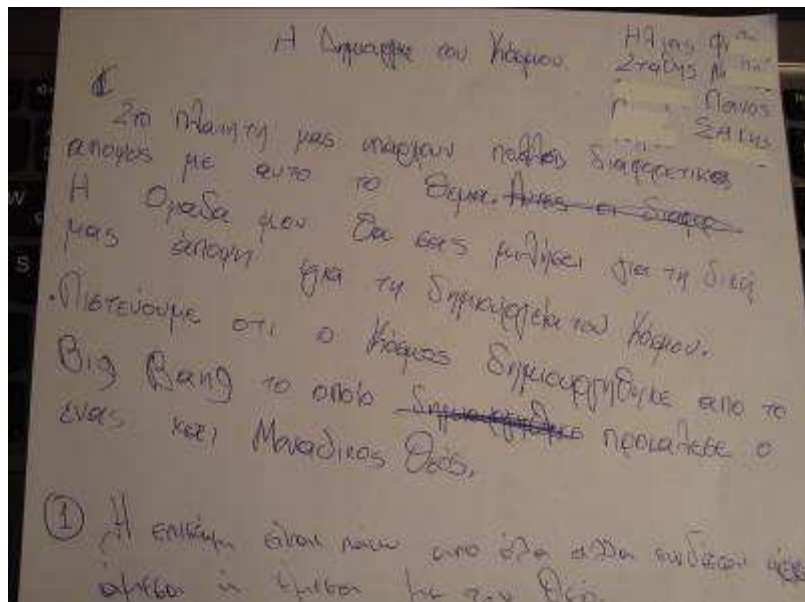 Η Δημιουργία του Κόσμου.
Ηλίας
Στάθης
Πάνος
ΣΑΚΗΣ
Στο πλανητη μας υπάρχουν πολλές διαφορετικές
αποψεις με αυτο το θεμα. Αυτες οι διαφο
Η Ομαδα μου θα σας μιλήσει για τη δική
μας άποψη για τη δημιουργεία του Κόσμου.
·Πιστεύουμε οτι ο Κόσμος δημιουργήθηκε απο το
Big Bang το οποίο δημιουργηθηκε προκάλεσε ο
ένας και Μοναδικος Θεός.
① Η επιστήμη είναι πάνω απο όλα αλλα συνδέεται
άμεσα ή έμμεσα με τον Θεό.